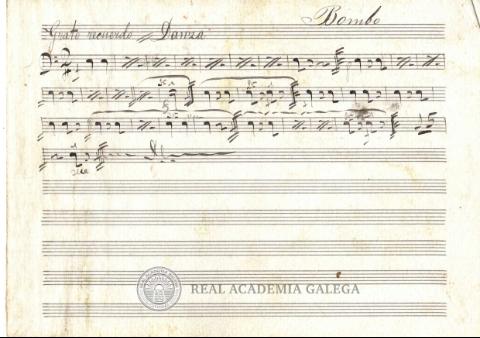 Bombo
Grato recuerdo = Danza
REAL ACADEMIA GALEGA